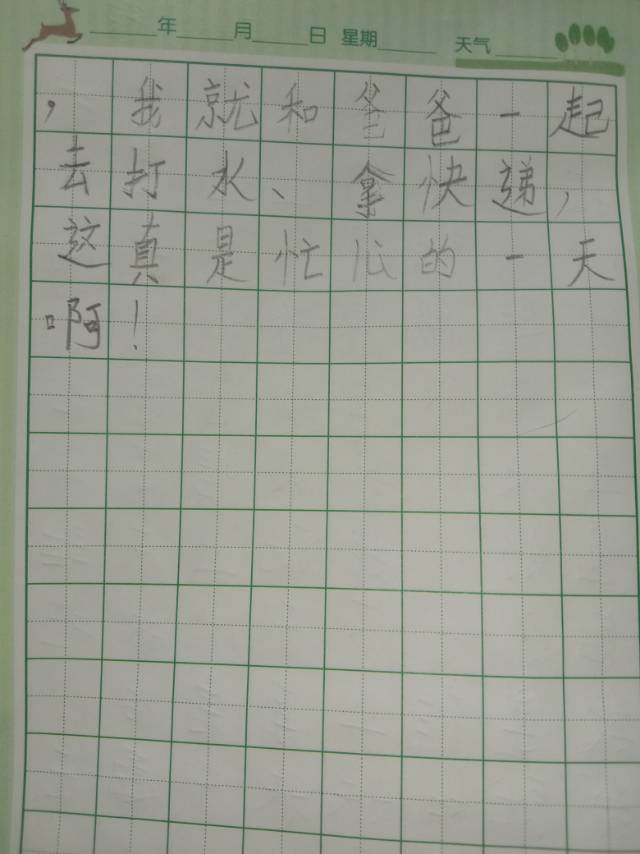 年 月 日 星期 天气
，我就和爸爸一起
去打水、拿快递，
这真是忙 的一天
啊！